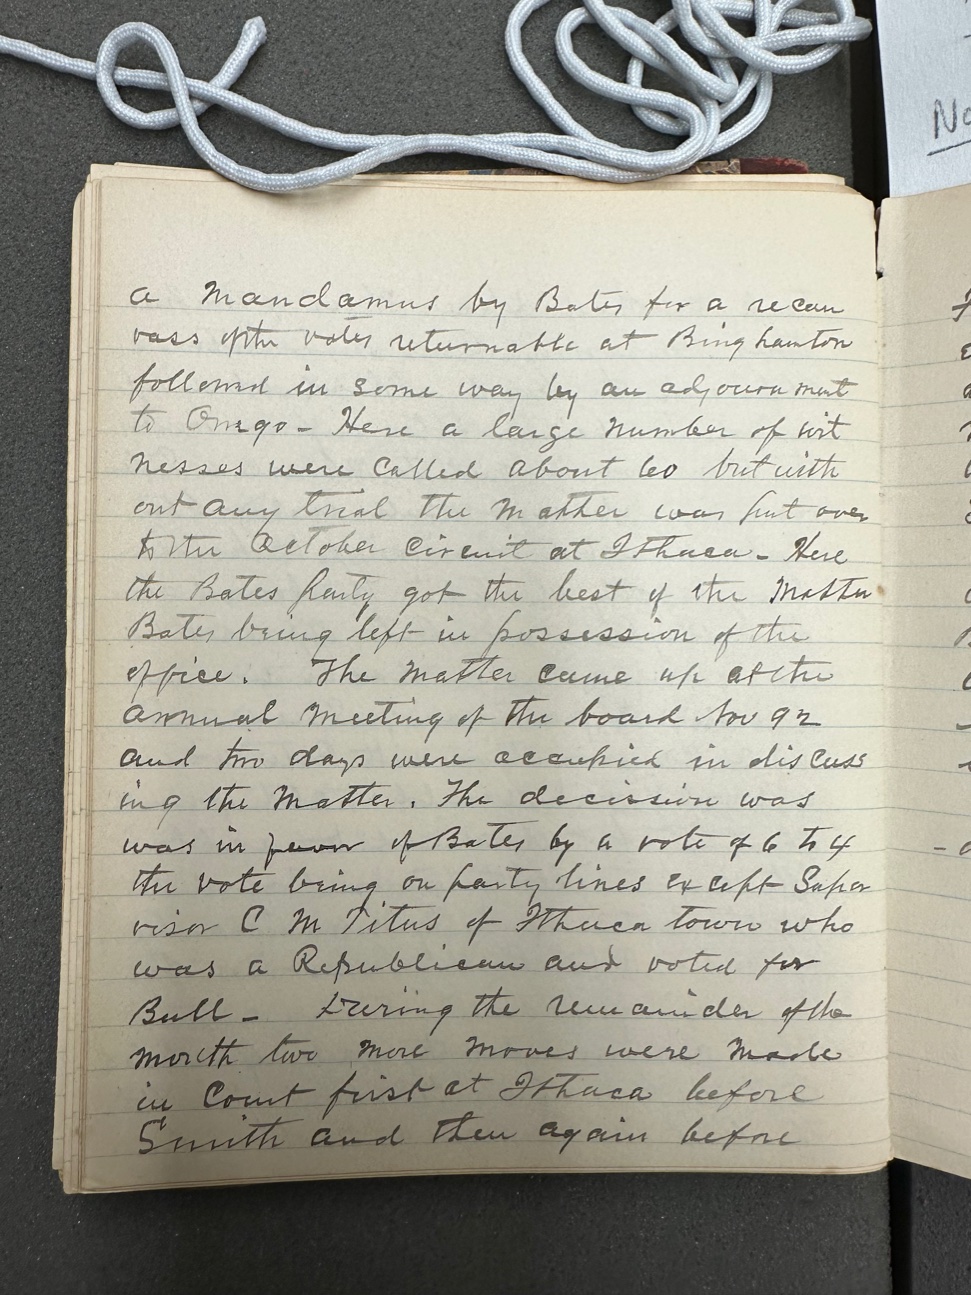 No
a Mandamus by Bates for a recan
vass of the votes returnable at Binghamton
followed in some way by an adjournment
to Owego - Here a large number of wit
nesses were called about 60 but with
out any trial the matter was put over
to the October Circuit at Ithaca - Here
the Bates party got the best of the Matter
Bates being left in possession of the
office. The Matter came up at the
annual Meeting of the board Nov 92
and two days were occupied in discuss
ing the Matter. The decission was
was in favor of Bates by a vote of 6 to 4
the vote being on party lines except Super
visor C M Titus of Ithaca town who
was a Republican and voted for
Bull - During the remainder of the
month two more moves were made
in Court first at Ithaca before
Smith and then again before